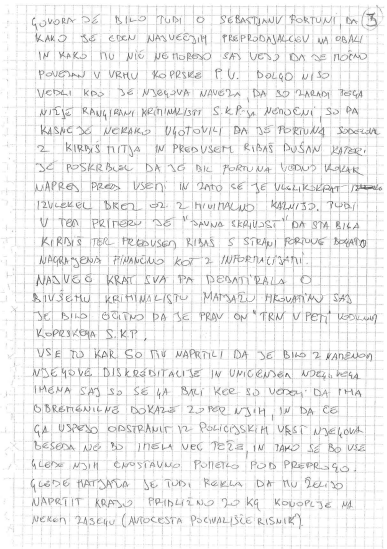 GOVORA JE BILO TUDI O SEBASTJANU FORTUNI, DA 3
KAKO JE EDEN NAJVEČJIH PREPRODAJALCEV NA OBALI
IN KAKO MU NIČ NEMOREJO SAJ VEJO DA JE MOČNO
POVEZAN V VRHU KOPRSKE P.U. DOLGO NISO
VEDLI KDO JE NJEGOVA NAVEZA DA SO ZARADI TEGA
NIŽJE RANGIRANI KRIMINALISTI S.K.P-JA NEMOČNI, SO PA
KASNEJE NEKAKO UGOTOVILI DA JE FORTUNA SODELOVAL
Z KIRBIŠ MITJA IN PREDVSEM RIBAŠ DUŠAN KATERI
JE POSKRBEL DA JE BIL FORTUNA VEDNO KORAK
NAPREJ PRED VSEMI IN ZATO SE JE VELIKOKRAT
IZVLEKEL BREZ OZ. Z MINIMALNO KAZNIJO. TUDI
V TEM PRIMERU JE "JAVNA SKRIVOST" DA STA BILA
KIRBIŠ TER PREDVSEM RIBAŠ S STRANI FORTUNE BOGATO
NAGRAJENA FINANČNO KOT Z INFORMACIJAMI.
NAJVEČ KRAT SVA PA DEBATIRALA O
BIVŠEMU KRIMINALISTU MATJAŽU HROVATIAN SAJ
JE BILO OČITNO DA JE PRAV ON "TRN V PETI"
KOPRSKEGA S.KP.
VSE TO KAR SO MU NAPRTILI DA JE BILO Z NAMENOM
NJEGOVE DISKREDITACIJE IN UNIČENJEM NJEGOVEGA
IMENA SAJ SO SE GA BALI KER SO VEDELI DA IMA
OBREMENILNE DOKAZE ZOPER NJIH, IN DA ČE
GA USPEJO ODSTRANIT IZ POLICIJSKIH VRST NJEGOVA
BESEDA NE BO IMELA VEČ TEŽE, IN TAKO SE BO VSE
GLEDE NJIH ENOSTAVNO POMETLO POD PREPROGO.
GLEDE MATJAŽA JE TUDI REKLA DA MU ŽELIJO
NAPRTIT KRAJO PRIBLIŽNO 20 KG KONOPLJE NA
NEKEM ZASEGU (AVTOCESTA POČIVALIŠČE RISNIK)